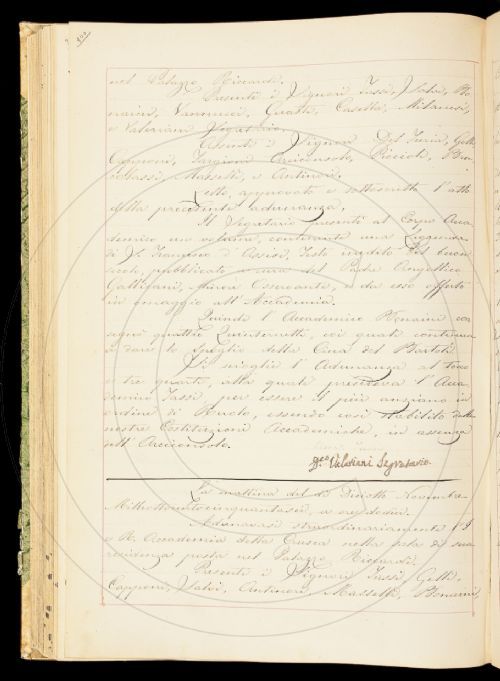 nel Palazzo Riccardi.
Presenti i Signori Tassi, Salvi, Be-
nucci, Vannucci, Guasti, Casella, Milanesi,
e Valeriani Segretario.
Assenti i Signori Del Furia, Gelli,
Capponi, Targioni Arciconsolo, Piccioli, Bu-
Massetti, e Antinori.
Letto, approvato e sottoscritto l'atto
della precedente adunanza.
Il Segretario presentò al Corpo Acca-
demico un volume, contenente una Leggenda
di S. Francesco d'Assisi, Testo inedito del buon
secolo, pubblicato a cura del Padre Angelico
Minore Osservante, e da esso offerto
in omaggio all'Accademia.
Quindi l'Accademico Benucci con
segnò quattro Quinternetti, coi quali continua
a dare lo Spoglio della Cina del Bartoli
Si sciolse l'Adunanza al tocco
e tre quarti, alla quale presedeva l'Acca-
demico Tassi, per essere il più anziano in
ordine di Ruolo, essendo così stabilito dalle
nostre Costituzioni Accademiche, in assenza
dell'Arciconsolo.
Valeriani Segretario
La mattina del dì Diciotto Novembre
Milleottocentocinquantasei, a ore dodici.
Adunavasi straordinariamente l'I.
e R. Accademia della Crusca nella sala di sua
residenza posta nel Palazzo Riccardi.
Presenti i Signori Tassi, Gelli,
Capponi, Salvi, Antinori, Massetti, Benucci,